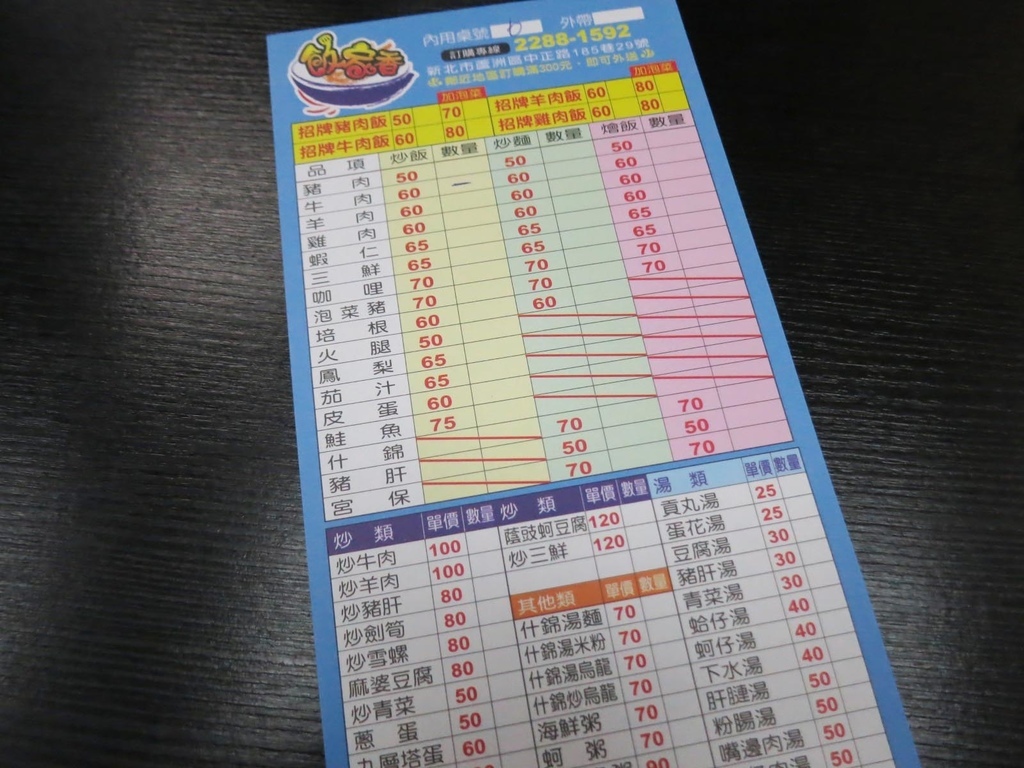 飯家香
內用桌號 6 外帶
訂購專線 2288-1592
新北市蘆洲區中正路185巷29號
鄰近地區訂購滿300元，即可外送
加泡菜 加泡菜
招牌豬肉飯 50 70 招牌羊肉飯 60 80
招牌牛肉飯 60 80 招牌雞肉飯 60 80
品項 炒飯 數量 炒麵 數量 燴飯 數量
豬肉 50 一 50 50
牛肉 60 60 60
羊肉 60 60 60
雞肉 60 60 60
蝦仁 65 65 65
三鮮 65 65 65
咖哩 70 70 70
泡菜豬 70 70 70
培根 60 60
火腿 50
鳳梨 65
茄汁 65
皮蛋 60
鮭魚 75
什錦 70 70
豬肝 50 50
宮保 70 70
炒類 單價 數量
炒牛肉 100
炒羊肉 100
炒豬肝 80
炒劍筍 80
炒雪螺 80
麻婆豆腐 80
炒青菜 50
蔥蛋 50
九層塔蛋 60
炒類 單價 數量
蔭豉蚵豆腐 120
炒三鮮 120
其他類 單價 數量
什錦湯麵 70
什錦湯米粉 70
什錦湯烏龍 70
什錦炒烏龍 70
海鮮粥 70
蚵粥 70
湯類 單價 數量
貢丸湯 25
蛋花湯 25
豆腐湯 30
豬肝湯 30
青菜湯 30
蛤仔湯 40
蚵仔湯 40
下水湯 40
肝腱湯 50
粉腸湯 50
嘴邊肉湯 50